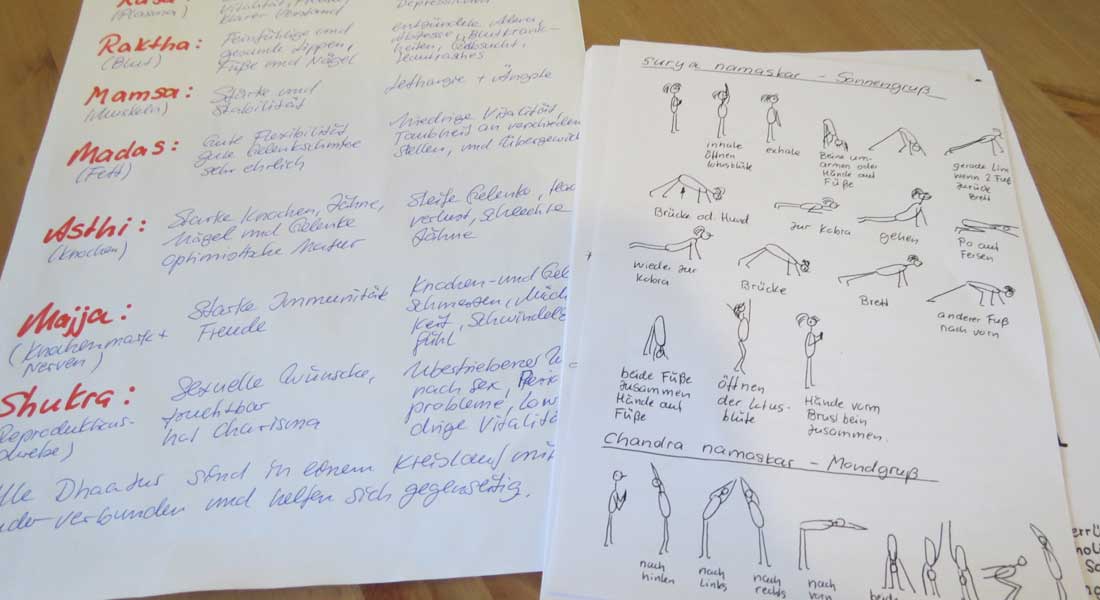 (Plasma)
Klarer Verstand
Depressionen
Raktha:
(Blut)
Feinfühlige und
gesunde Lippen,
Füße und Nägel
entzündete
Abszesse, Blutkrank-
heiten, Gelbsucht,
Mamsa:
(Muskeln)
Stärke und
Stabilität
Lethargie + Ängste
Madas:
(Fett)
Gute Flexibilität
gute Gelenkschmiere
sehr ehrlich
Niedrige Vitalität
Taubheit an verschieden
stellen, und Übergewich
Asthi:
(Knochen)
Starke Knochen, Zähne,
Nägel und Gelenke
optimistische Natur
Steife Gelenke,
verlust, schlechte
Zähne
Majja:
(Knochenmark +
Nerven)
Starke Immunität
Freude
Knochen- und Gel
schmerzen, Müd
keit, Schwindel
fühl
Shukra:
Reproduktions-
Sexuelle Wünsche,
fruchtbar
hat Charisma
nach Sex,
probleme,
drige Vitalitä
lle Dhaatus sind in einem Kreislauf mit
nder verbunden und helfen sich gegenseitig.
surya namaskar - Sonnengruß
inhale
öffnen
Lotusblüte
exhale
Beine um-
armen oder
Hände auf
Füße
gerade Lin
wenn 2 Fuß
zurück
Brett
Brücke od. Hund
zur Kobra
gehen
Po auf
Fersen
wieder zur
Kobra
Brücke
Brett
anderer Fuß
nach vorn
beide Füße
zusammen
Hände auf
Füße
öffnen
der Lotus-
blüte
Hände vorm
Brustbein
zusammen.
Chandra namaskar - Mondgruß
nach
hinten
nach
links
nach
rechts
nach
vorn
beide